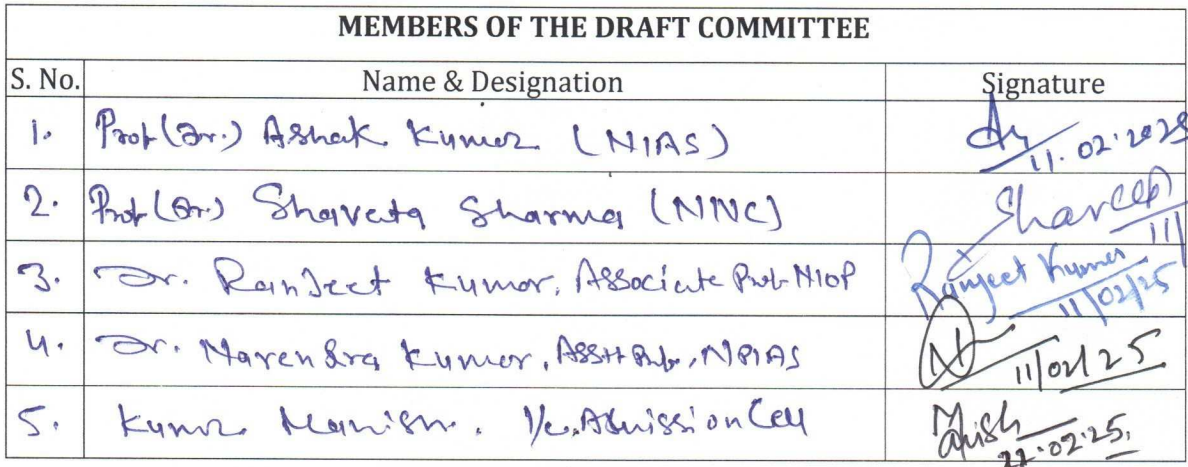 MEMBERS OF THE DRAFT COMMITTEE
S. No. Name & Designation Signature
1. Prof (Dr.) Ashak Kumar (NIAS) 11.02.2025
2. Prof (Dr.) Shaveta Sharma (NNC)
3. Dr. Ranjeet Kumar, Associate Prof. NIOP Ranjeet Kumar 11/02/25
4. Dr. Narendra Kumar, Asstt Prof., NPIAS 11/02/25
5. Kumar Manish. I/c. Admission Cell 02.25.